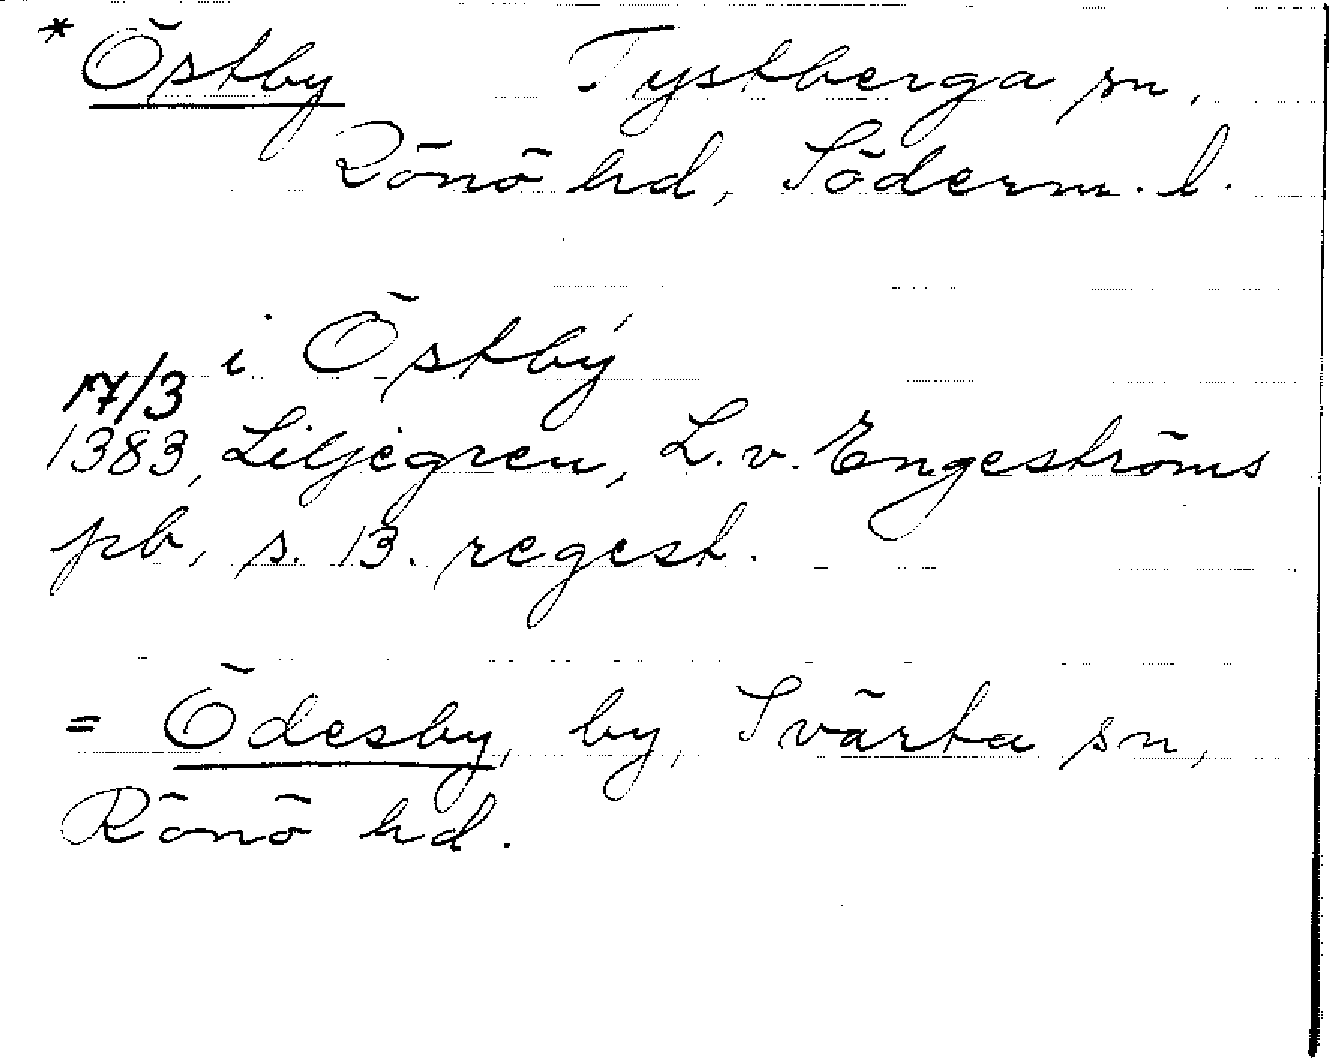 * Östby Tystberga sn,
Rönö hd, Söderm. l.
i Östbý
17/3
1383, Liljegren, L. v. Engeströms
pb, s. 13. regest.
= Ödesby, by, Svärta sn,
Rönö hd.